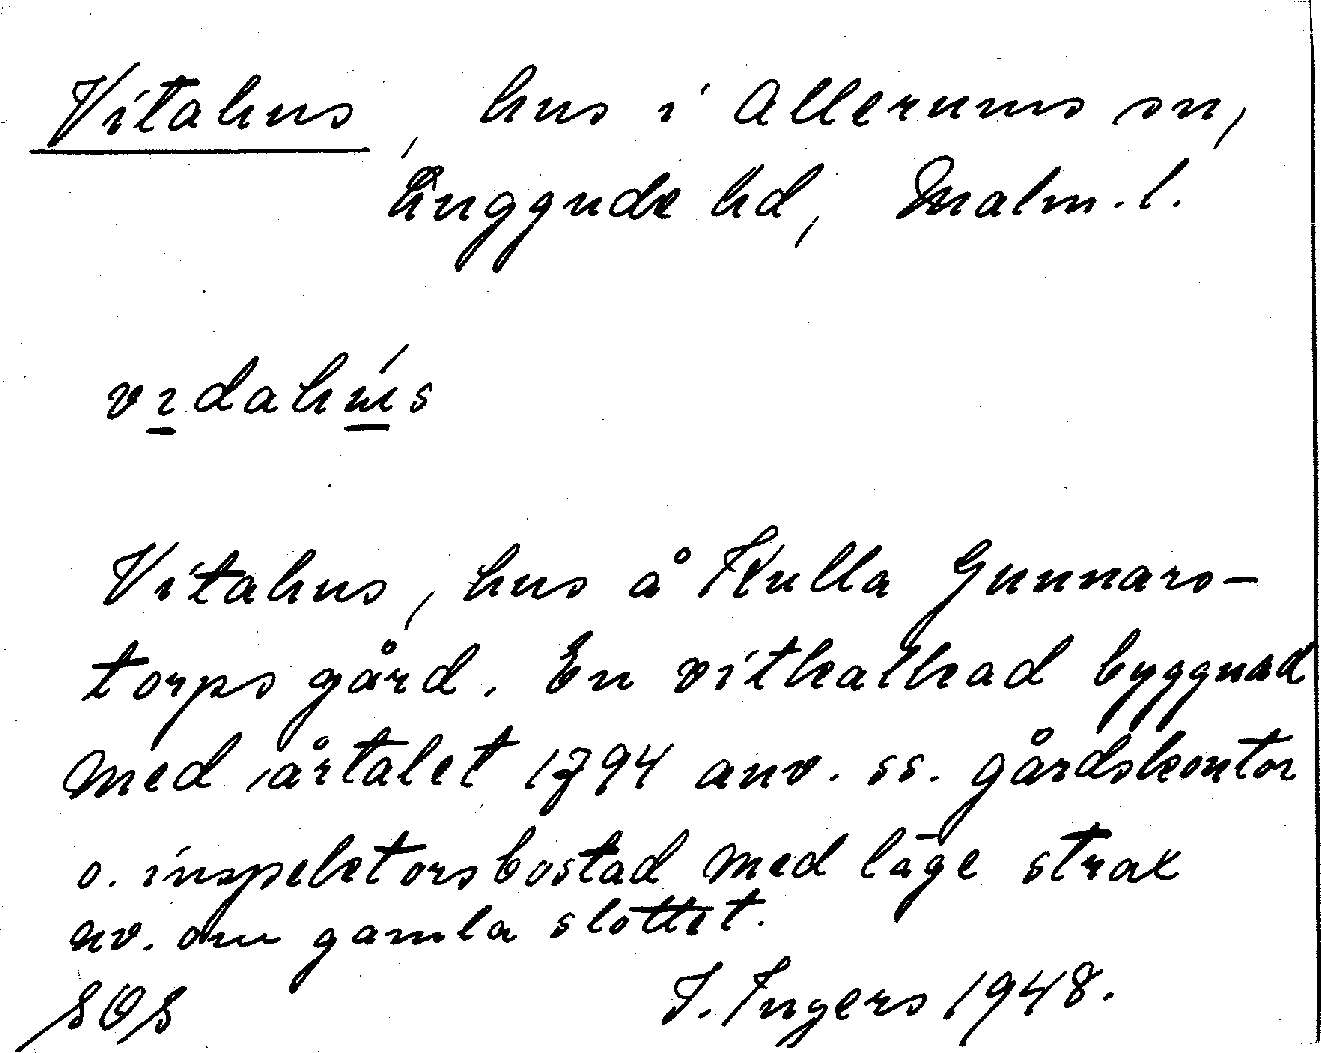 Vitahus, hus i Allerums sn,
Luggude hd, Malm. l.
vıdahús
Vitahus, hus å Kulla Gunnars-
torps gård. En vitkalkad byggnad
med årtalet 1794 anv. ss. gårdskontor
o. inspektorsbostad med läge strax
nv. om gamla slottet.
I. Ingers 1948.